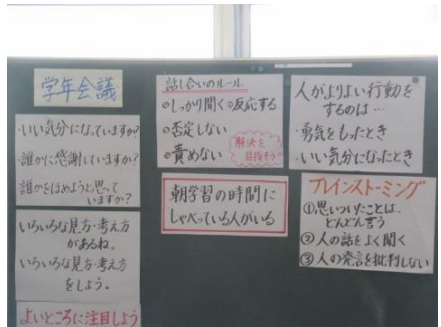 学年会議
・いい気分になっていますか?
・誰かに感謝していますか?
・誰かをほめようと思って
いますか?
いろいろな見方・考え方
があるね。
いろいろな見方・考え方
をしよう。
よいところに注目しよう
話し合いのルール
◎しっかり聞く◎反応する
◎否定しない
◎責めない
解決を
目指そう
朝学習の時間に
しゃべっている人がいる
人がよりよい行動を
するのは…
・勇気をもったとき
・いい気分になったとき
ブレインストーミング
①思いついたことは、
どんどん言う
②人の話をよく聞く
③人の発言を批判しない